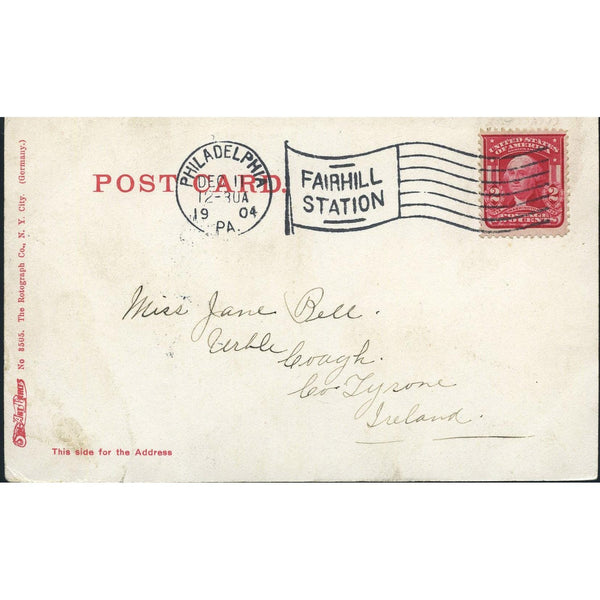 UNITED STATES
OF AMERICA
2 2
POSTAGE
TWO CENTS
PHILADELPHIA
DEC 11
12-30A
19 04
PA.
FAIRHILL
STATION
POST CARD.
Miss Jane Bell.
Cough.
Co Tyrone
Ireland.
This side for the Address
No 8505. The Rotograph Co., N. Y. City. (Germany.)